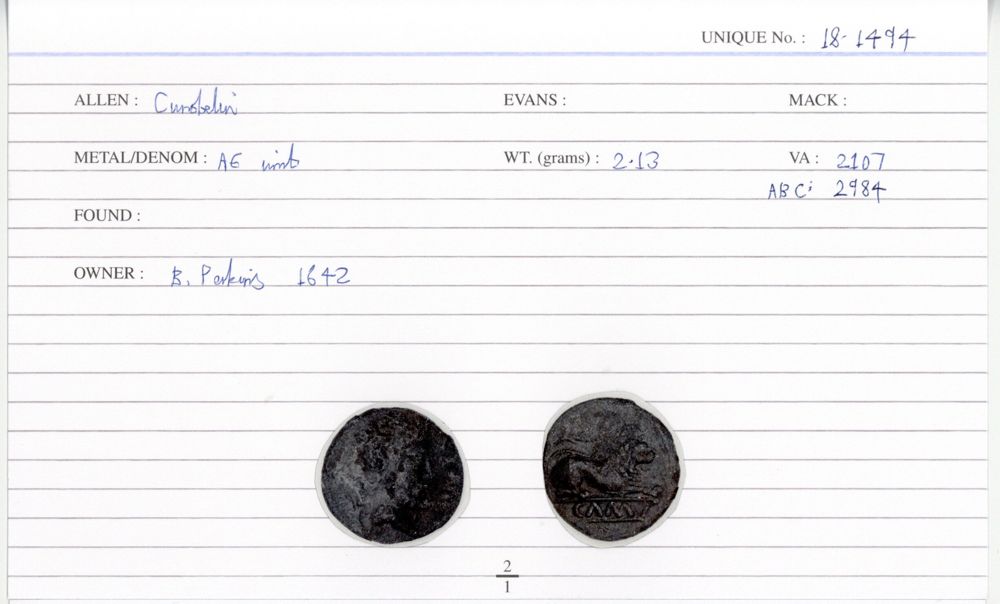 UNIQUE No. : 18-1494
ALLEN : Cunobelin EVANS : MACK :
METAL/DENOM : AE unit WT. (grams) : 2.13 VA : 2107
ABC: 2984
FOUND :
OWNER : B. Perkins 1642
CAM
2
1